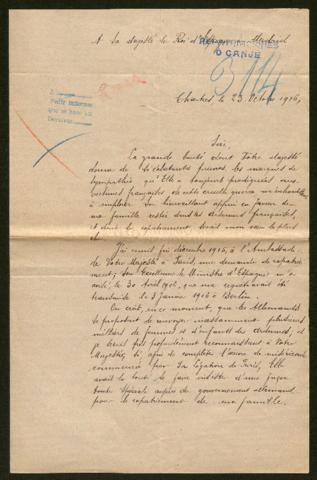 A Sa Majesté le Roi d'Espagne Madrid
REPATRIACIONES
Ó CANJE
Chartres le 23 Octobre 1916,
Sire,
La grande bonté dont Votre Majesté
donne de si éclatantes preuves, les marques de
sympathie qu'Elle a toujours prodiguées aux
victimes françaises de cette cruelle guerre
à implorer Son bienveillant appui en faveur de
ma famille restée dans les Ardennes françaises,
et dont le rapatriement serait mon vœu le plus
cher.
J'ai remis fin décembre 1915, à l'Ambassade
de Votre Majesté à Paris, une demande de rapatrie
ment; Son Excellence le Ministre d'Espagne m'a
avisé, le 30 Avril 1916, que ma requête avait été
transmise le 8 janvier 1916 à Berlin.
On croit, en ce moment, que les Allemands
se proposent de renvoyer incessamment plusieurs
milliers de femmes et d'enfants des Ardennes, et
je serais très profondément reconnaissant à Votre
Majesté, si, afin de compléter l'œuvre de miséricorde
commencée par Sa légation de Paris, Elle
avait la bonté de faire insister d'une façon
toute spéciale auprès du gouvernement allemand
pour le rapatriement de ma famille.